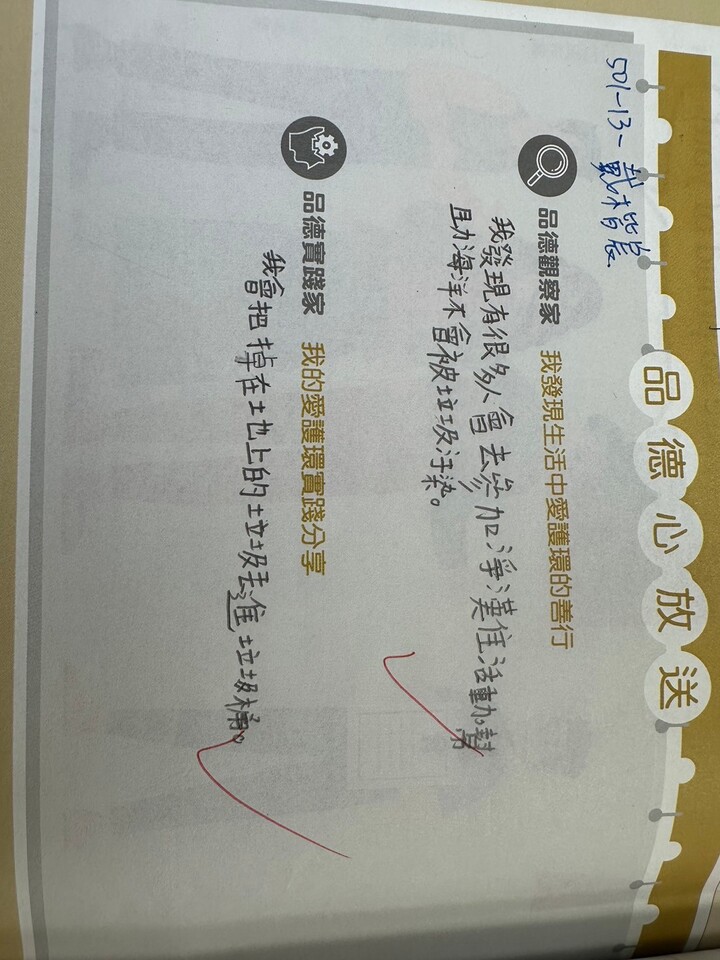 品德心放送
501-13-戴楷宸
品德觀察家 我發現生活中愛護環的善行
我發現有很多人會去參加淨灘活動幫
助海洋不會被垃圾汙染。
品德實踐家 我的愛護環實踐分享
我會把掉在地上的垃圾丟進垃圾桶。